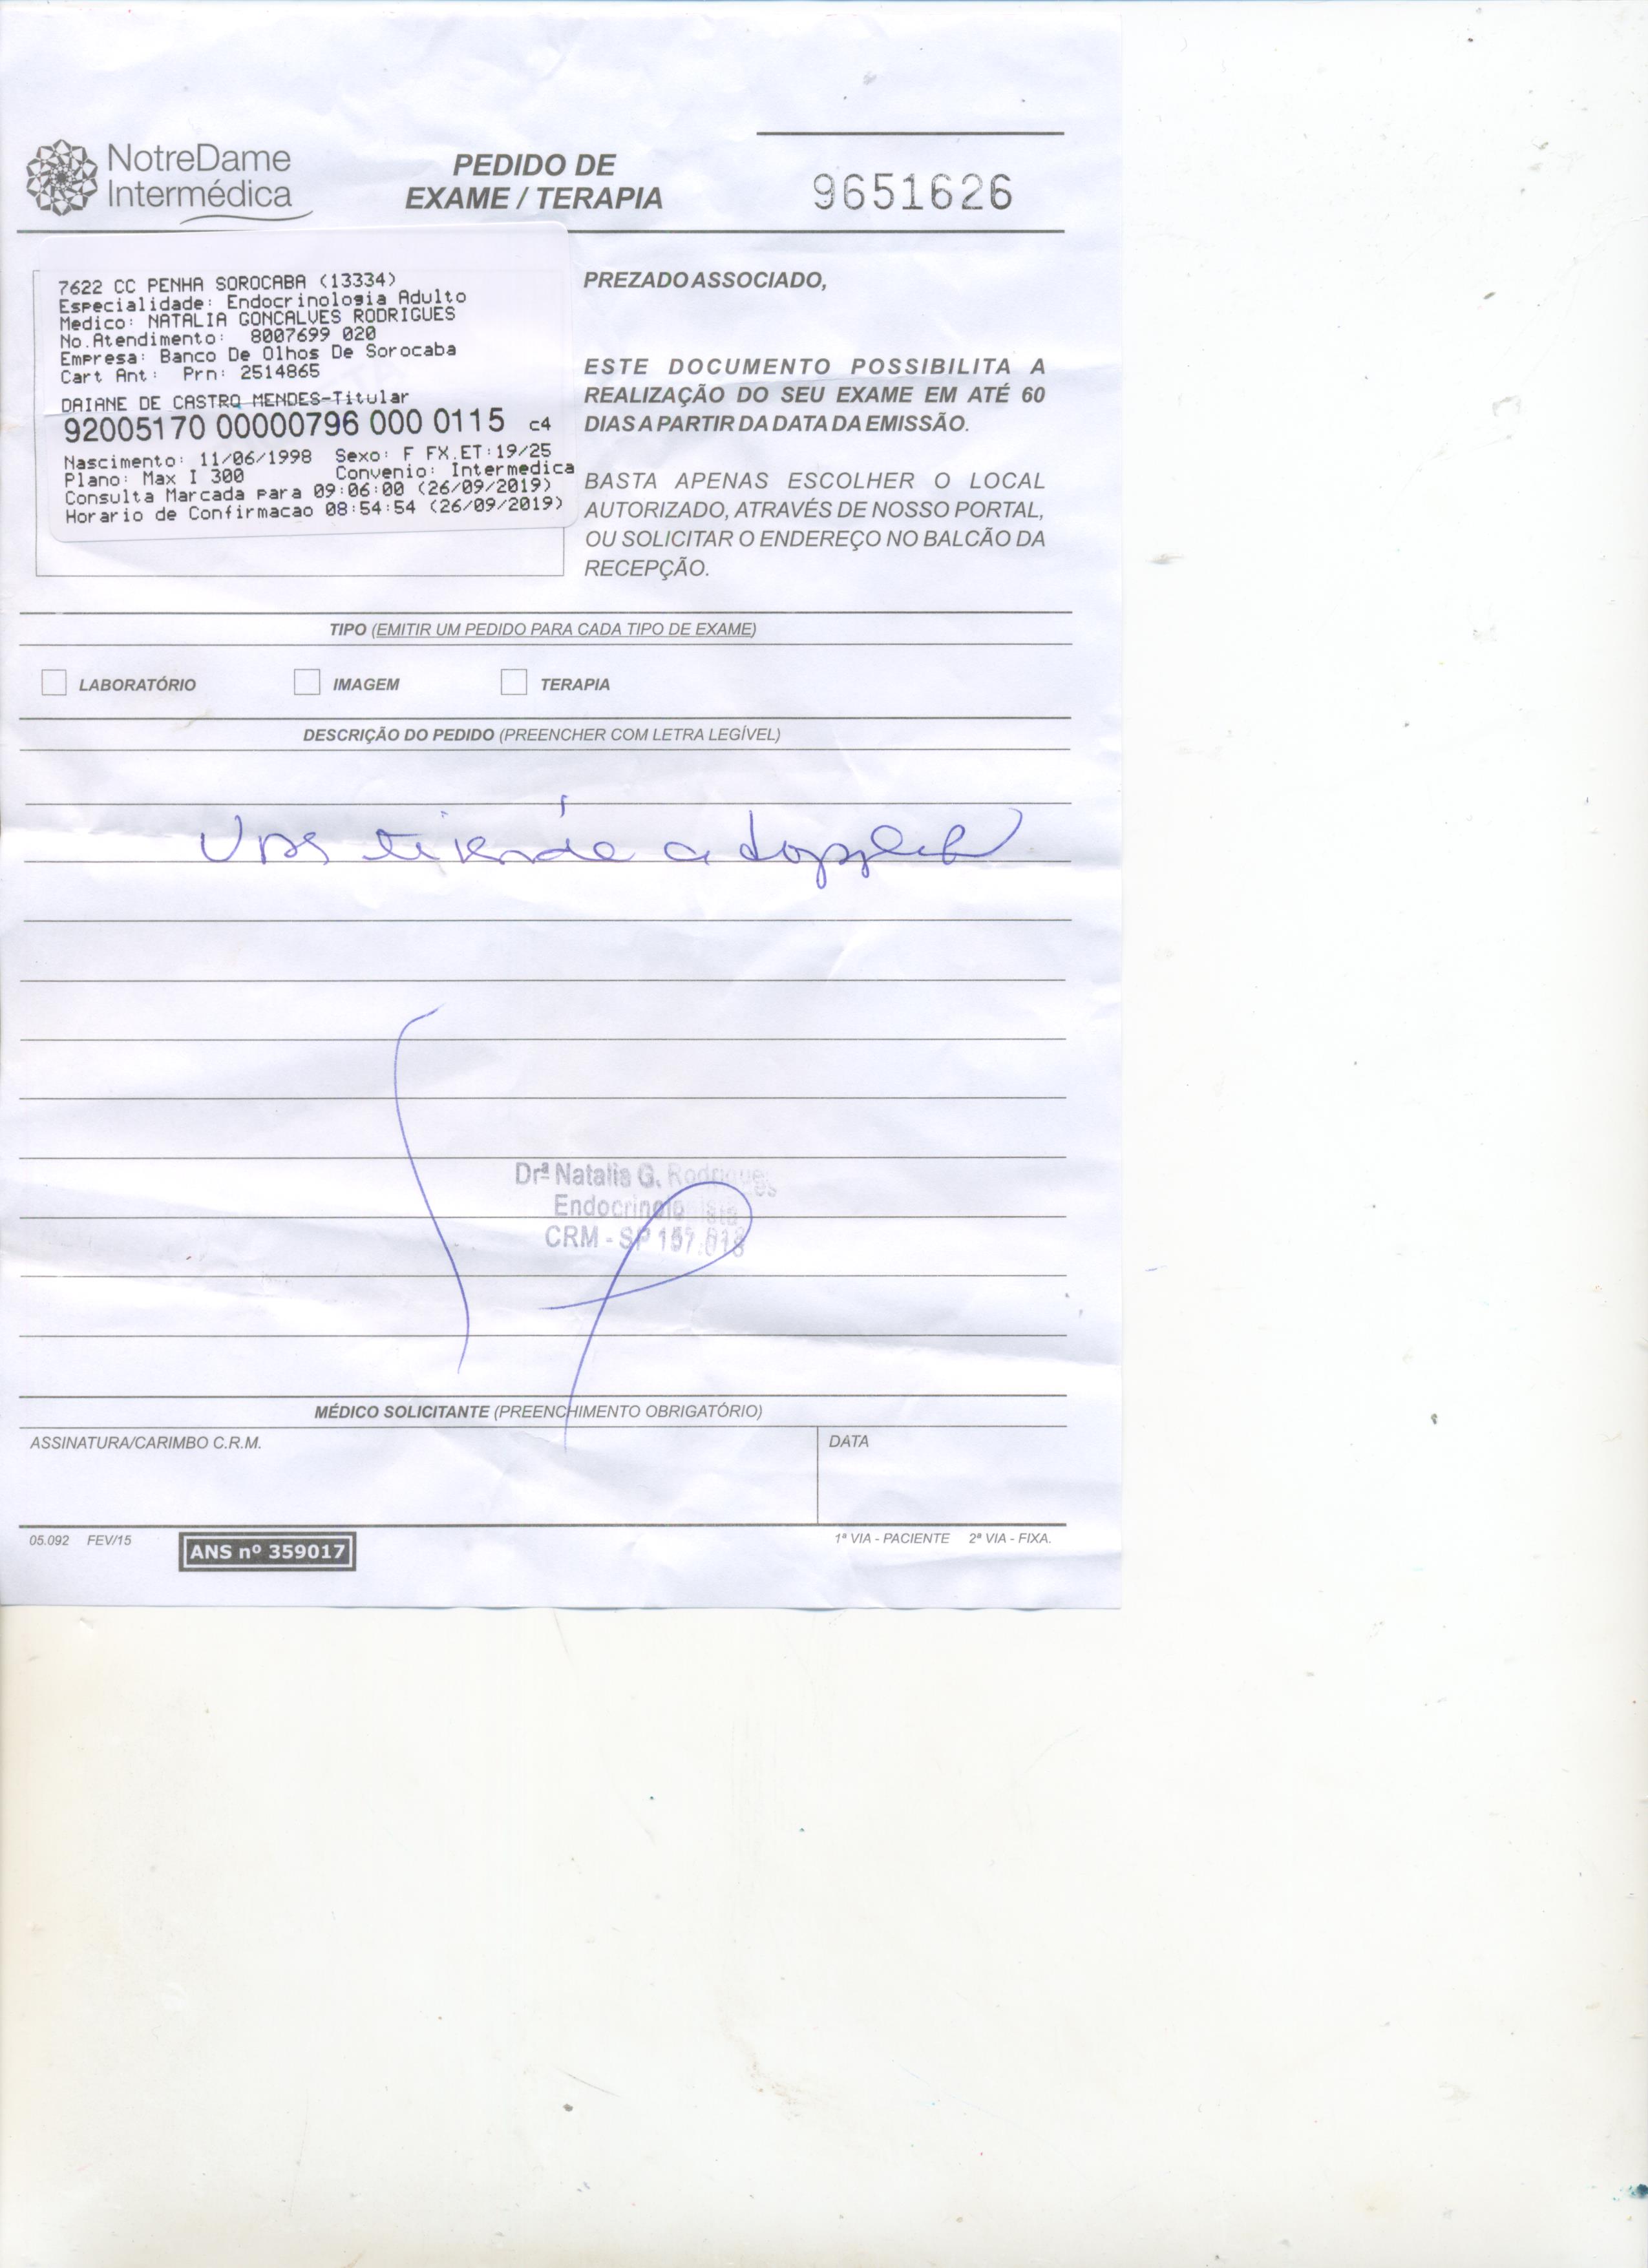 NotreDame
Intermédica
PEDIDO DE
EXAME / TERAPIA
9651626
7622 CC PENHA SOROCABA (13334)
Especialidade: Endocrinologia Adulto
Medico: NATALIA GONCALVES RODRIGUES
No.Atendimento: 8007699 020
Empresa: Banco De Olhos De Sorocaba
Cart Ant: Prn: 2514865
DAIANE DE CASTRO MENDES-Titular
92005170 00000796 000 0115 c4
Nascimento: 11/06/1998 Sexo: F FX.ET:19/25
Plano: Max I 300 Convenio: Intermedica
Consulta Marcada para 09:06:00 (26/09/2019)
Horario de Confirmacao 08:54:54 (26/09/2019)
PREZADO ASSOCIADO,
ESTE DOCUMENTO POSSIBILITA A
REALIZAÇÃO DO SEU EXAME EM ATÉ 60
DIAS A PARTIR DA DATA DA EMISSÃO.
BASTA APENAS ESCOLHER O LOCAL
AUTORIZADO, ATRAVÉS DE NOSSO PORTAL,
OU SOLICITAR O ENDEREÇO NO BALCÃO DA
RECEPÇÃO.
TIPO (EMITIR UM PEDIDO PARA CADA TIPO DE EXAME)
LABORATÓRIO IMAGEM TERAPIA
DESCRIÇÃO DO PEDIDO (PREENCHER COM LETRA LEGÍVEL)
doppler
Drª Natalia G. Rodrigues
Endocrinologista
CRM - SP
MÉDICO SOLICITANTE (PREENCHIMENTO OBRIGATÓRIO)
ASSINATURA/CARIMBO C.R.M. DATA
05.092 FEV/15 ANS nº 359017 1ª VIA - PACIENTE 2ª VIA - FIXA.